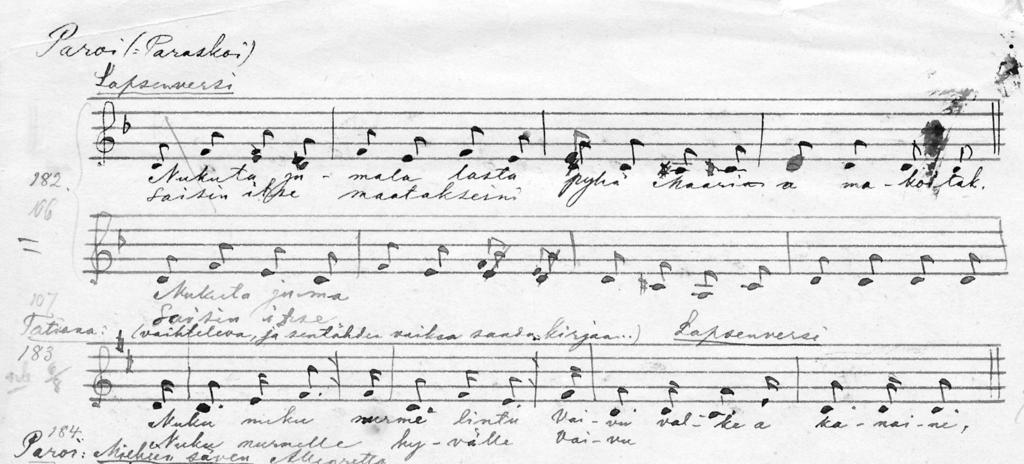 Paroi (: Paraskoi)
Lapsenversi
Nukuta ju - mala lasta pyhä Maaria a ma - koitak.
182. Saisin itse maatakseini
106
Nukuta juma
107 Saisin itse
Tatiana: (vaihteleva, ja sentähden vaikea saada kirjaan...) Lapsenversi
183
Nuku niku nurmé lintu Vai - vu väl - ke ä ka - nai - ne,
184. Nuku nurmelle hy - välle Vai - vu
Paroi: Miehien sävel Allegretto